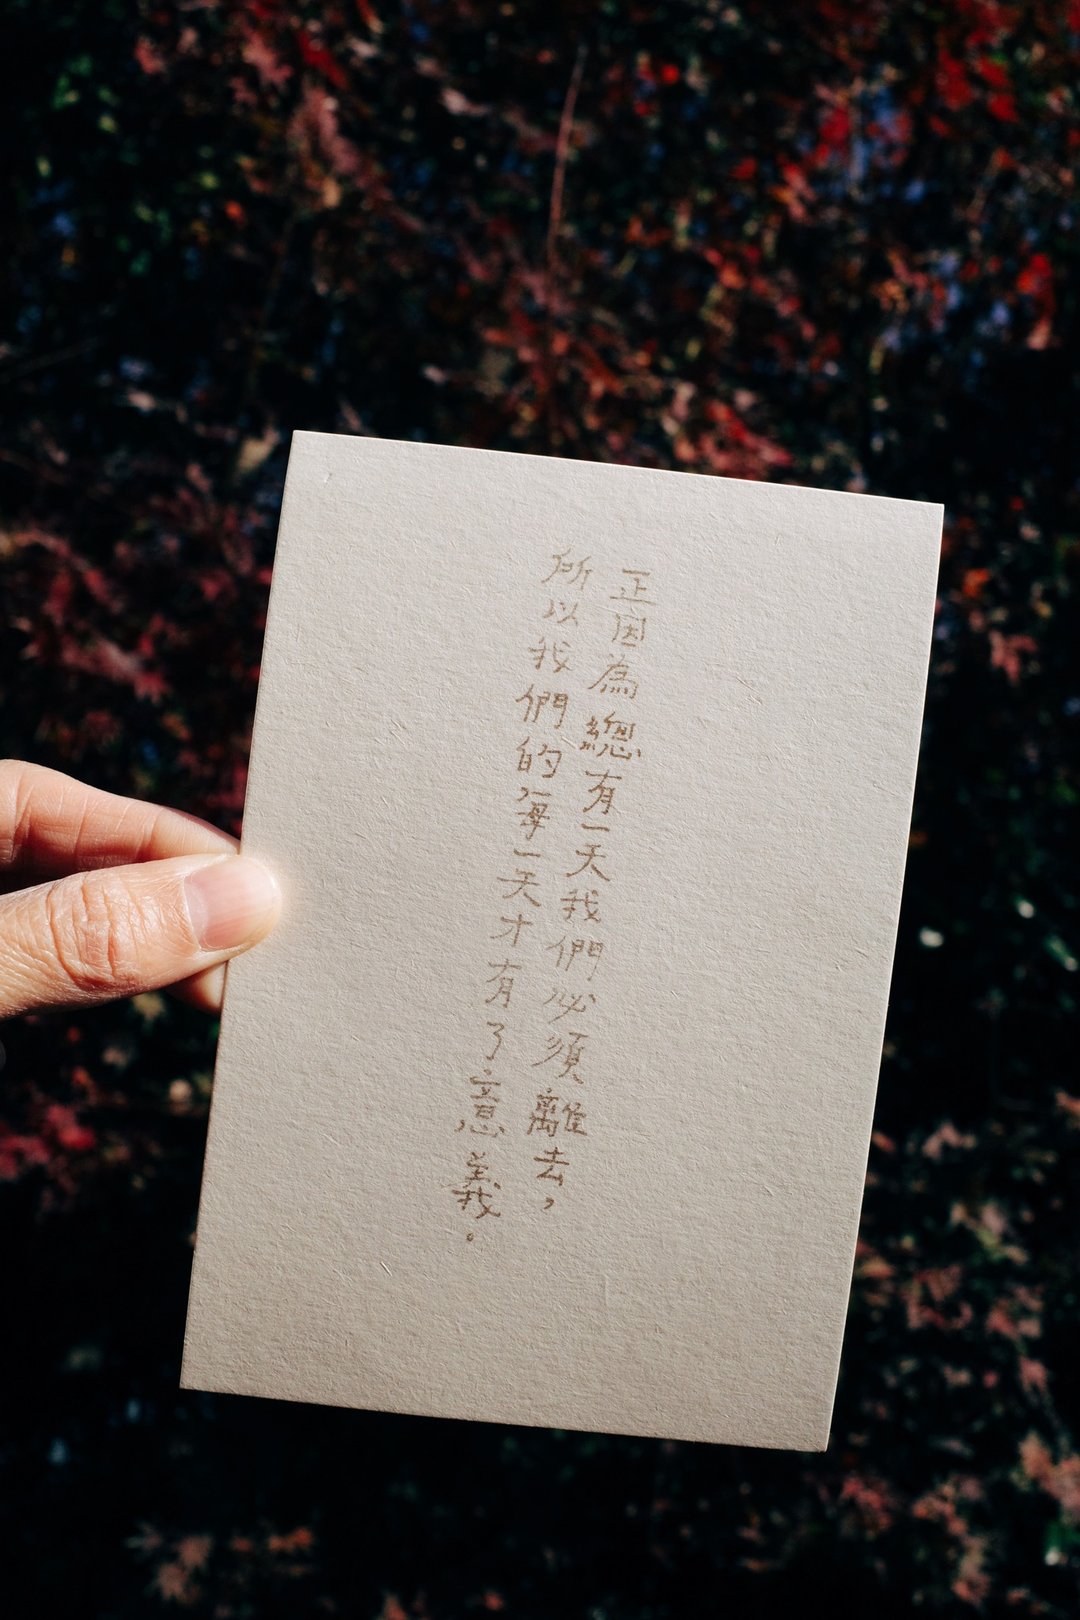 正因為總有一天我們必須離去，
所以我們的每一天才有了意義。